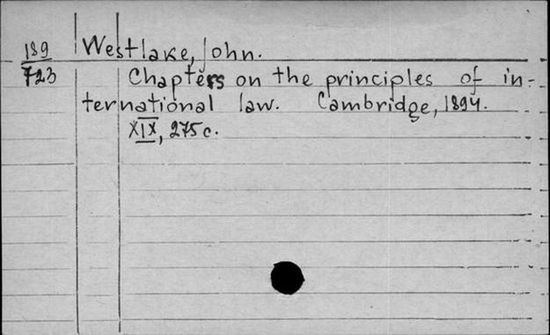 189
723
Westlake, John.
Chapters on the principles of in-
ternational law. Cambridge, 1894.
XIX, 275c.